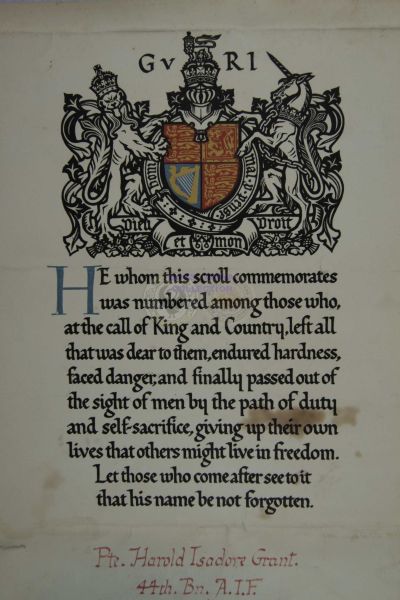 GV RI
Dieu et mon Droit
HE whom this scroll commemorates
was numbered among those who,
at the call of King and Country, left all
that was dear to them, endured hardness,
faced danger, and finally passed out of
the sight of men by the path of duty
and self-sacrifice, giving up their own
lives that others might live in freedom.
Let those who come after see to it
that his name be not forgotten.
Pte. Harold Isadore Grant.
44th. Bn. A.I.F.